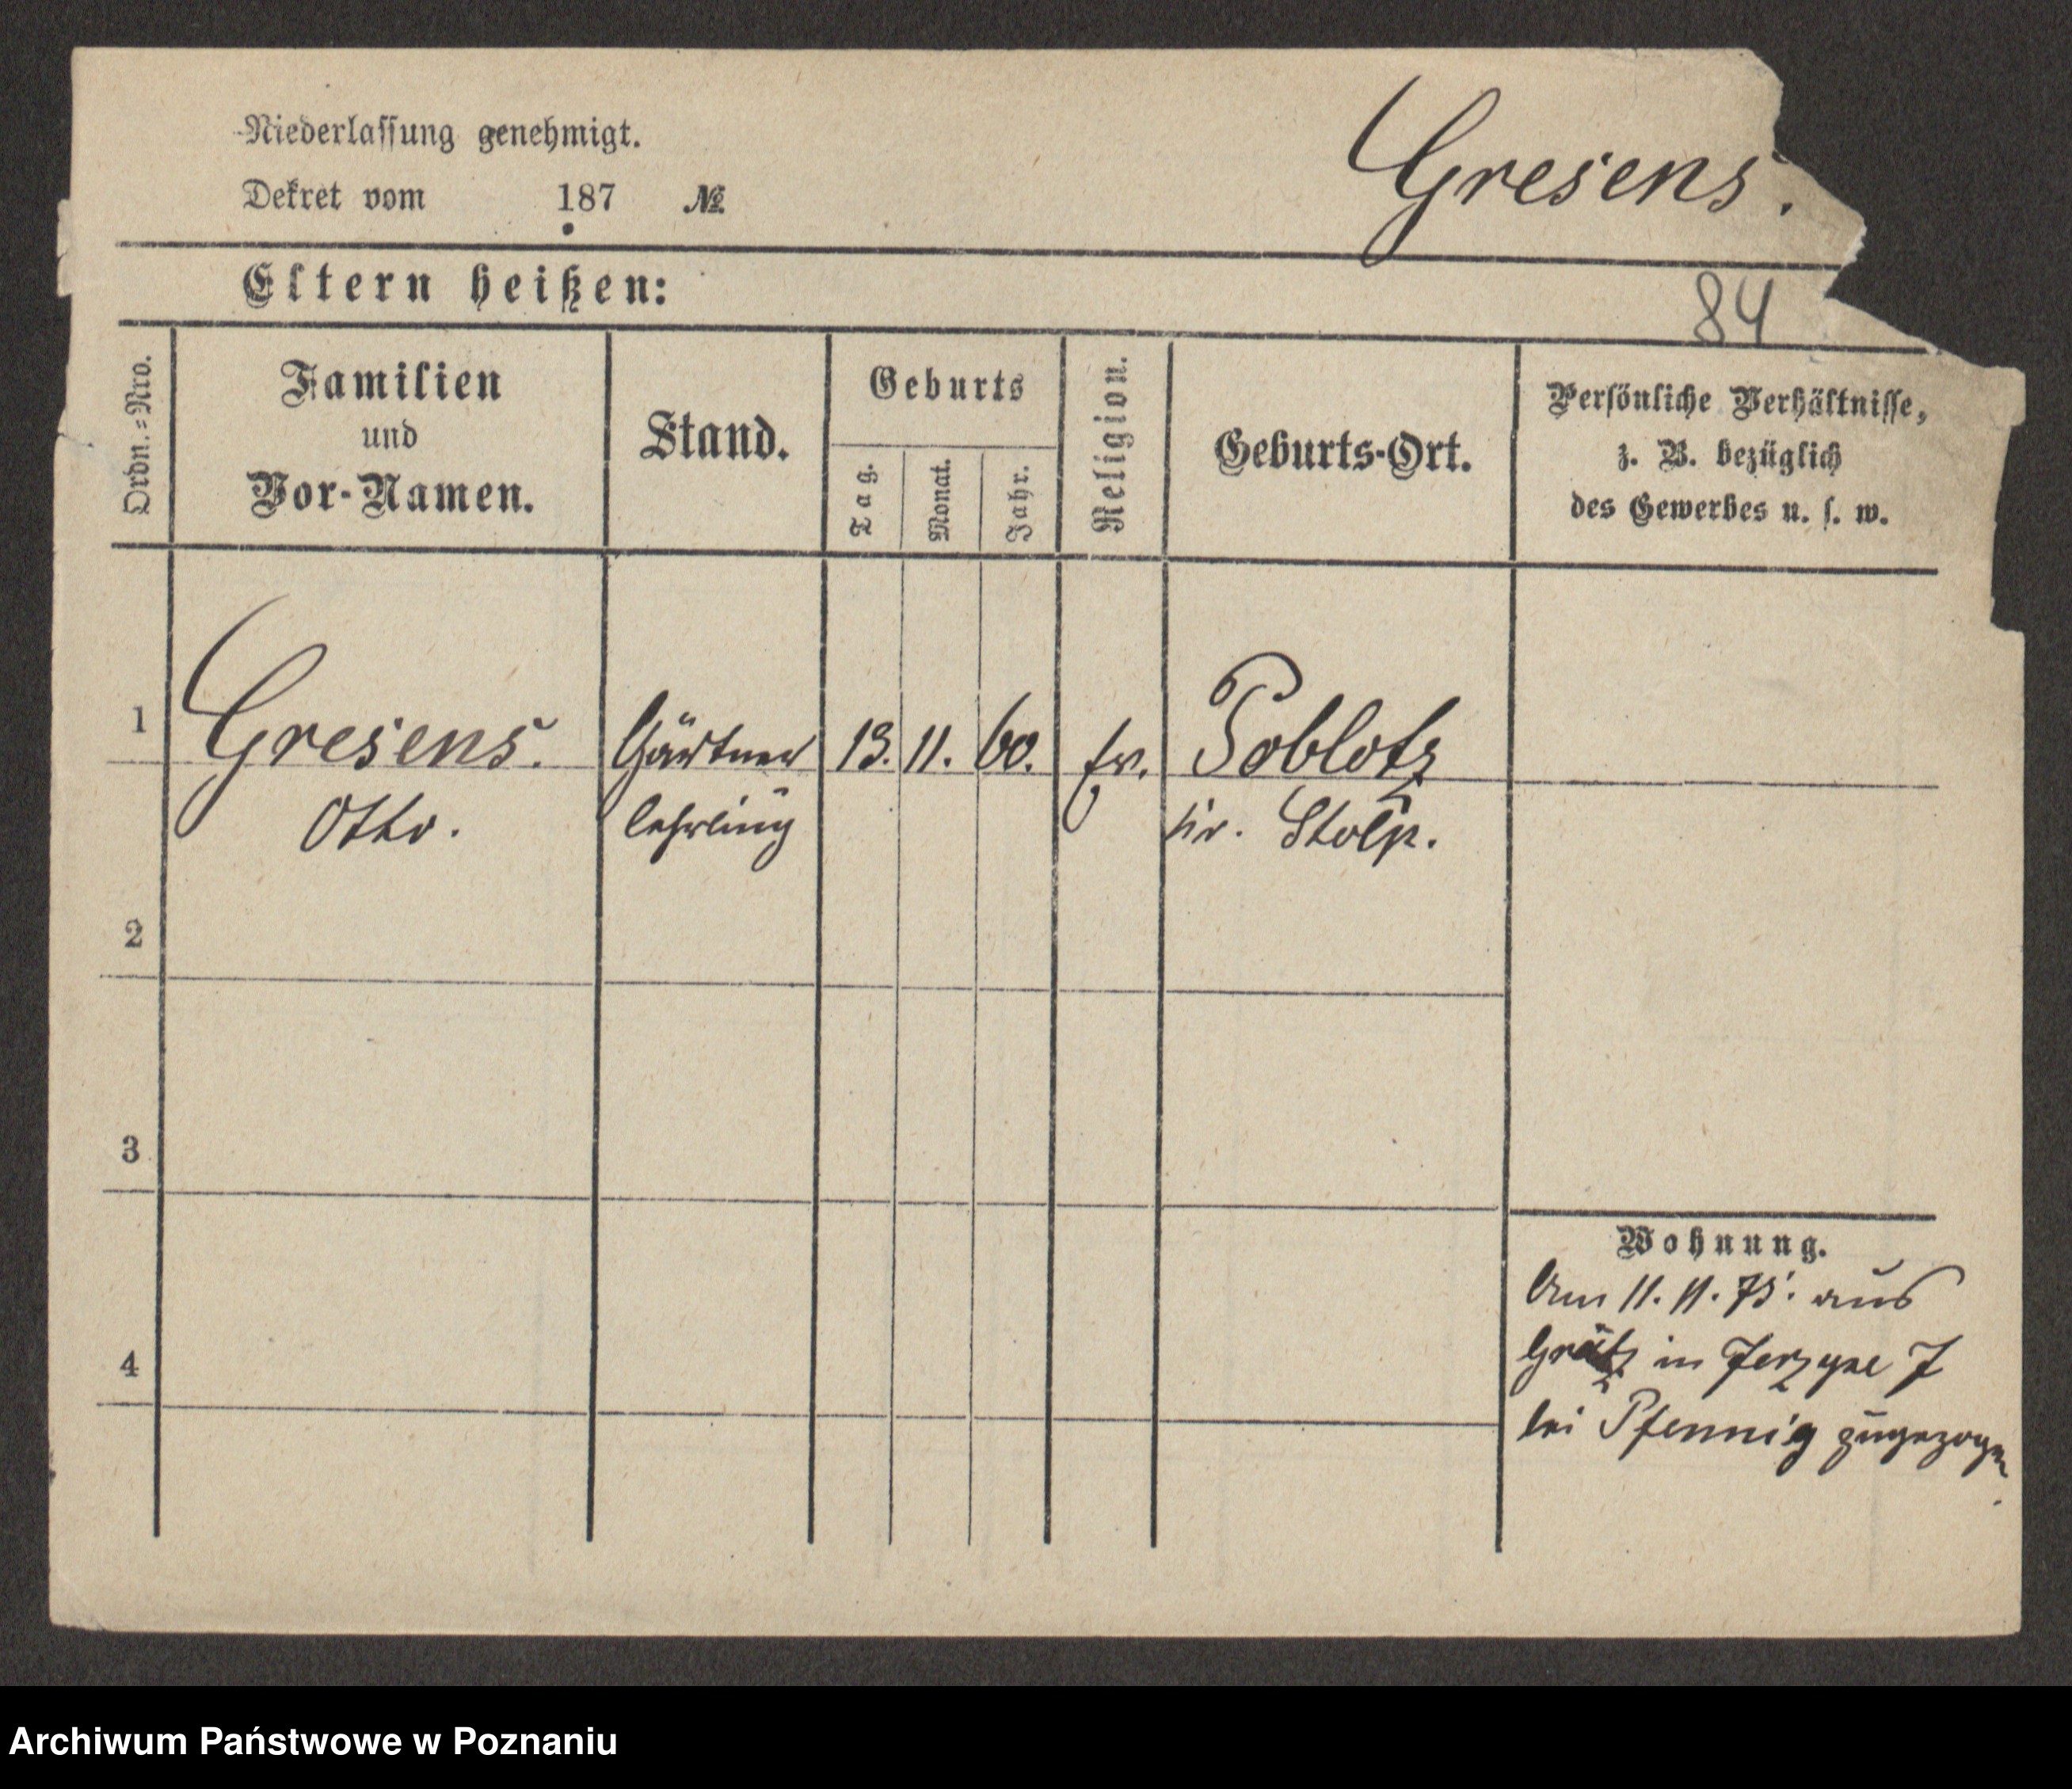 Niederlassung genehmigt.
Dekret vom 187 №
Gresens.
Eltern heißen:
84
Ordn.=Nro.
Familien
und
Vor-Namen.
Stand.
Geburts
Tag.
Monat.
Jahr.
Religion.
Geburts-Ort.
Persönliche Verhältnisse,
z. B. bezüglich
des Gewerbes u. s. w.
1 Gresens. Gärtner 13. 11. 60. Poblotz
Otto. lehrling Stolp.
2
3
4
Wohnung.
Am 11. 11. 75. aus
Grätz in 7
bei Pfennig zugezogen
Archiwum Państwowe w Poznaniu